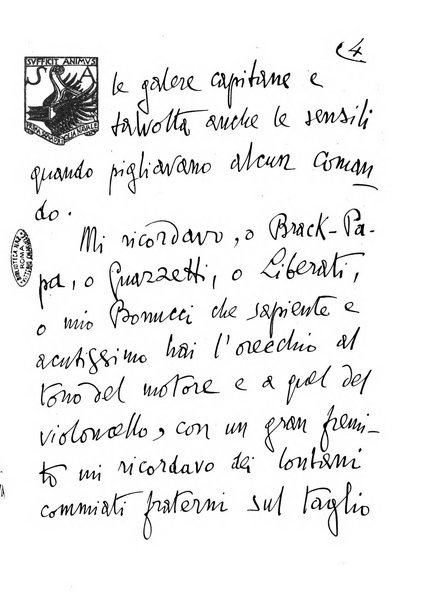 4
SVFFICIT ANIMVS
S A
le galere capitane e
talvolta anche le sensili
quando pigliavano alcun coman
do.
Mi ricordavo, o Brack-Pa-
pa, o Guazzetti, o Liberati,
o mio Bonucci che sapiente e
acutissimo hai l'orecchio al
tono del motore e a quel del
violoncello, con un gran fremi-
to mi ricordavo dei lontani
commiati fraterni sul taglio